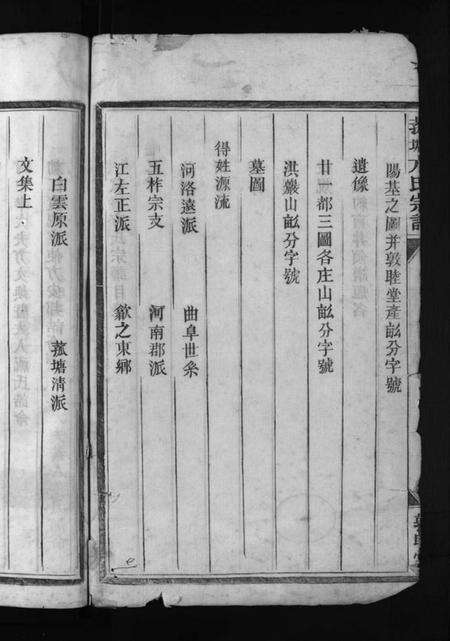 菰塘方氏宗譜
陽基之圖并敦睦堂產畝分字號
遺像
廿一都三圖各庄山畝分字號
淇巖山畝分字號
墓圖
得姓源流
河洛遠派 曲阜世系
五柞宗支 河南郡派
江左正派 歙之東鄉
白雲原派 菰塘清派
文集上